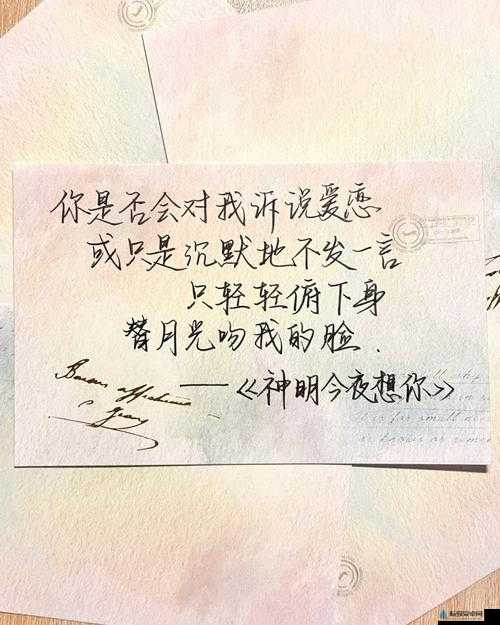 你是否会对我诉说爱恋
或只是沉默地不发一言
只轻轻俯下身
替月光吻我的脸.
——《神明今夜想你》